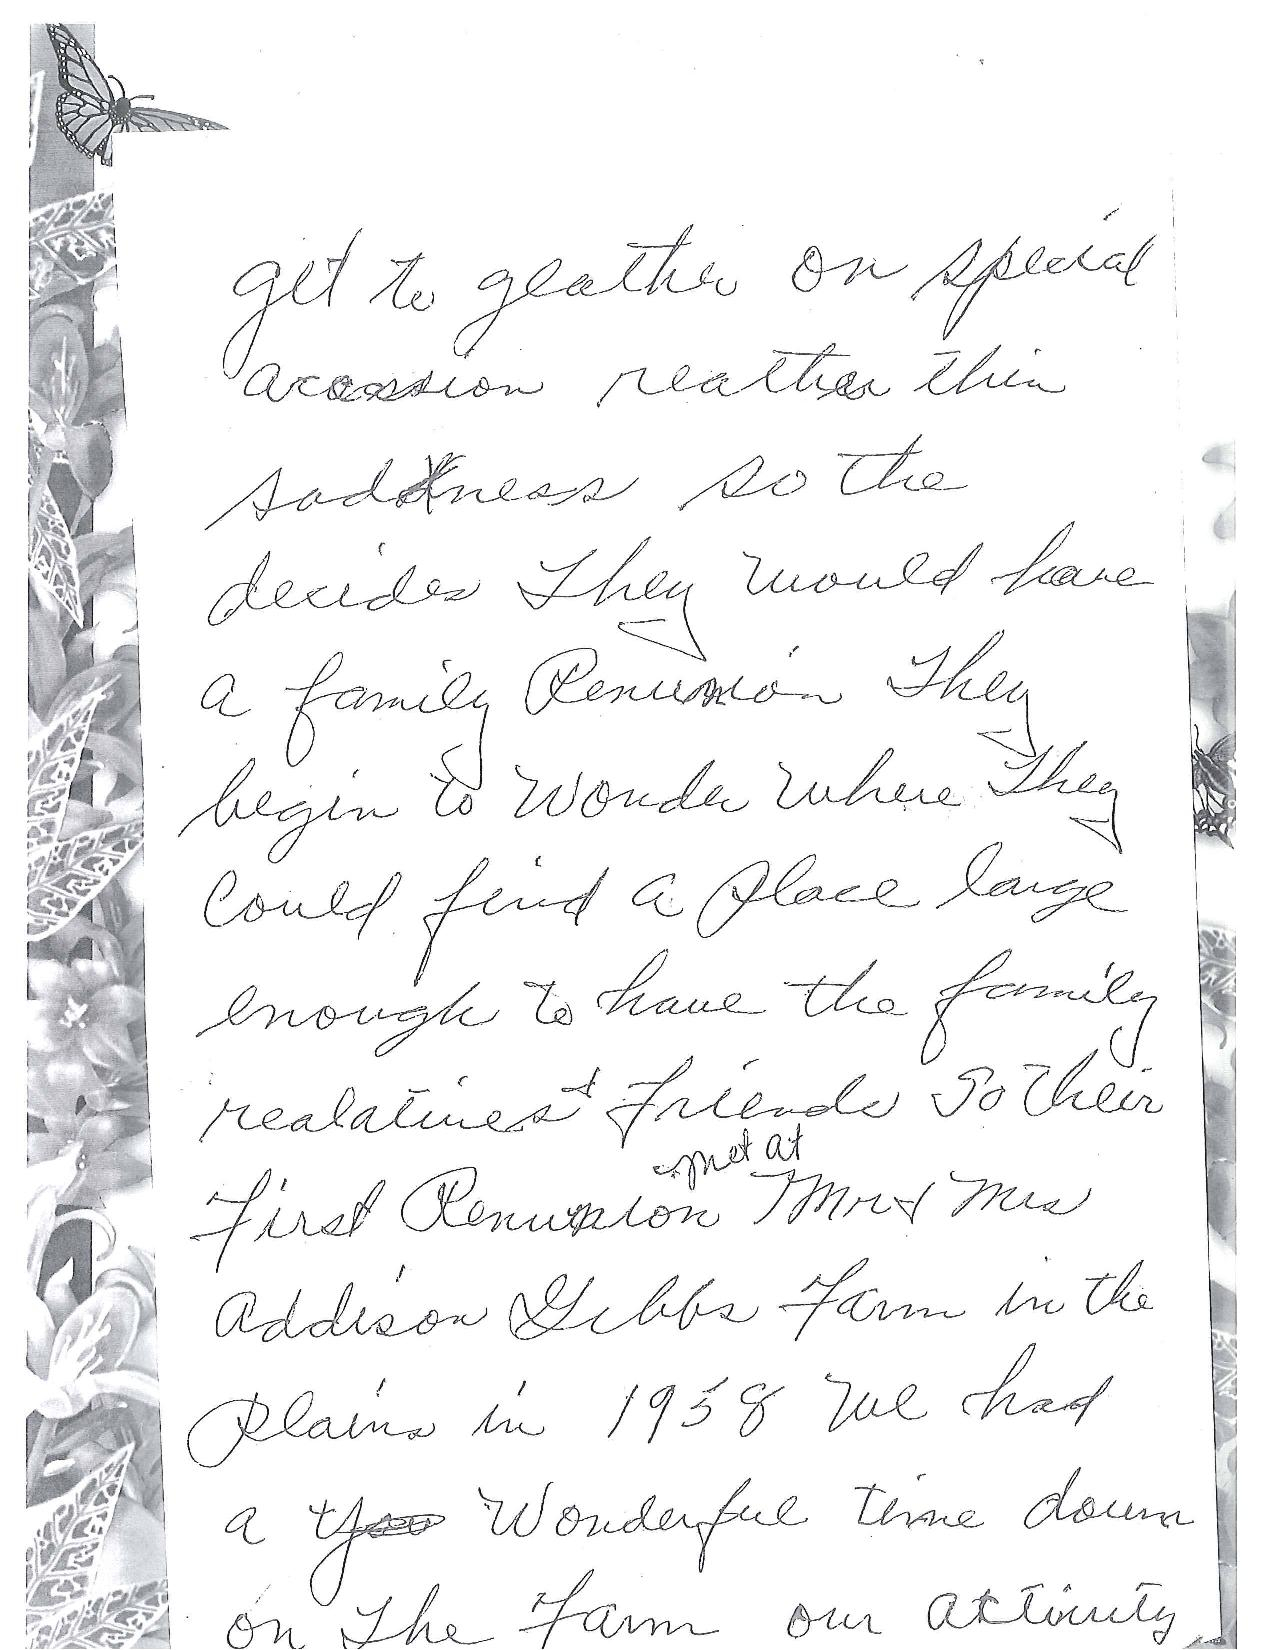 get to geather on special
accassion reather thin
saddness so the
decides They would have
a family Renunion They
begin to Wonder where They
Could find a place large
enough to have the family
realatives & Friends So Their
met at
First Renunion Mr & Mrs
Addison Gibbs Farm in the
Plains in 1958 We had
a Wonderful time down
on The Farm our activity